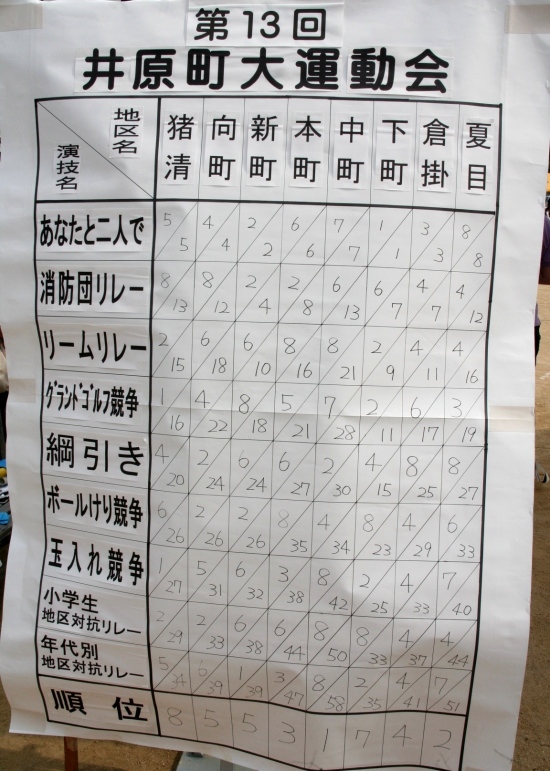 第13回
井原町大運動会
地区名
演技名
猪清 向町 新町 本町 中町 下町 倉掛 夏目
あなたと二人で 5 4 2 6 7 1 3 8
5 4 2 6 7 1 3 8
消防団リレー 8 8 2 2 6 6 4 4
13 12 4 8 13 7 7 12
リームリレー 2 6 6 8 8 2 4 4
15 18 10 16 21 9 11 16
グランドゴルフ競争 1 4 8 5 7 2 6 3
16 22 18 21 28 11 17 19
綱引き 4 2 6 6 2 4 8 8
20 24 24 27 30 15 25 27
ボールけり競争 6 2 2 8 4 8 4 6
26 26 26 35 34 23 29 33
玉入れ競争 1 5 6 3 8 2 4 7
27 31 32 38 42 25 33 40
小学生
地区対抗リレー 2 2 6 6 8 8 4 4
29 33 38 44 50 33 37 44
年代別
地区対抗リレー 5 6 1 3 8 2 4 7
34 39 39 47 58 35 41 51
順位 8 5 5 3 1 7 4 2